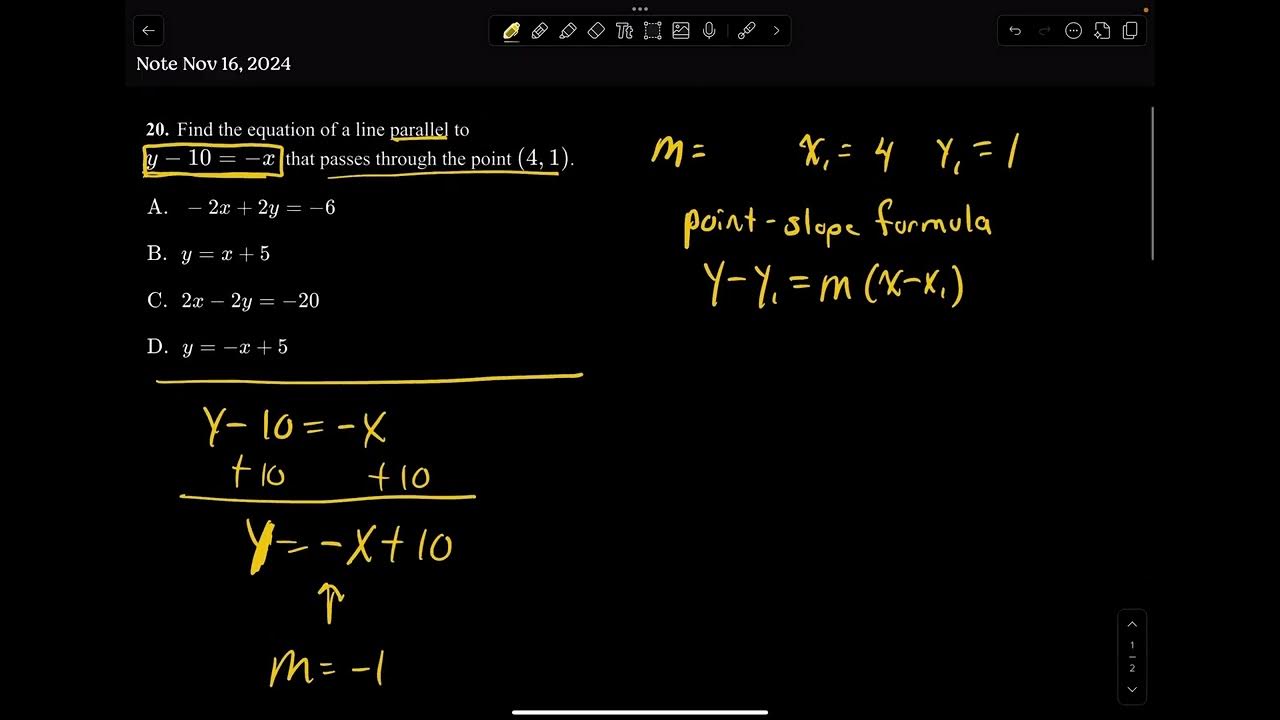 Tt
Note Nov 16, 2024
20. Find the equation of a line parallel to
y − 10 = −x that passes through the point (4, 1).
A. − 2x + 2y = −6
B. y = x + 5
C. 2x − 2y = −20
D. y = −x + 5
y − 10 = −x
+10 +10
y = −x + 10
↑
m = −1
m = x₁ = 4 y₁ = 1
point-slope formula
y − y₁ = m (x − x₁)
1
2